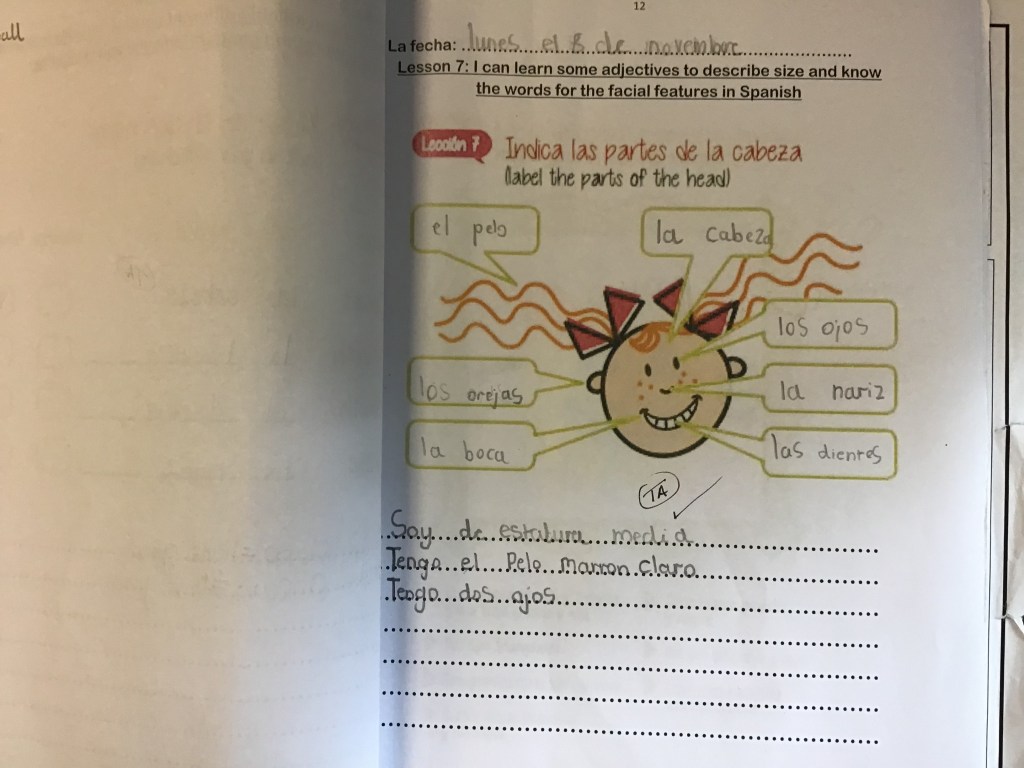 all
12
La fecha: lunes el 8 de novembre
Lesson 7: I can learn some adjectives to describe size and know
the words for the facial features in Spanish
Lección 7
Indica las partes de la cabeza
(label the parts of the head)
el pelo
la cabeza
los ojos
los orejas
la nariz
la boca
las dientes
TA
Soy de estatura media
Tengo el Pelo marron claro
Tengo dos ojos